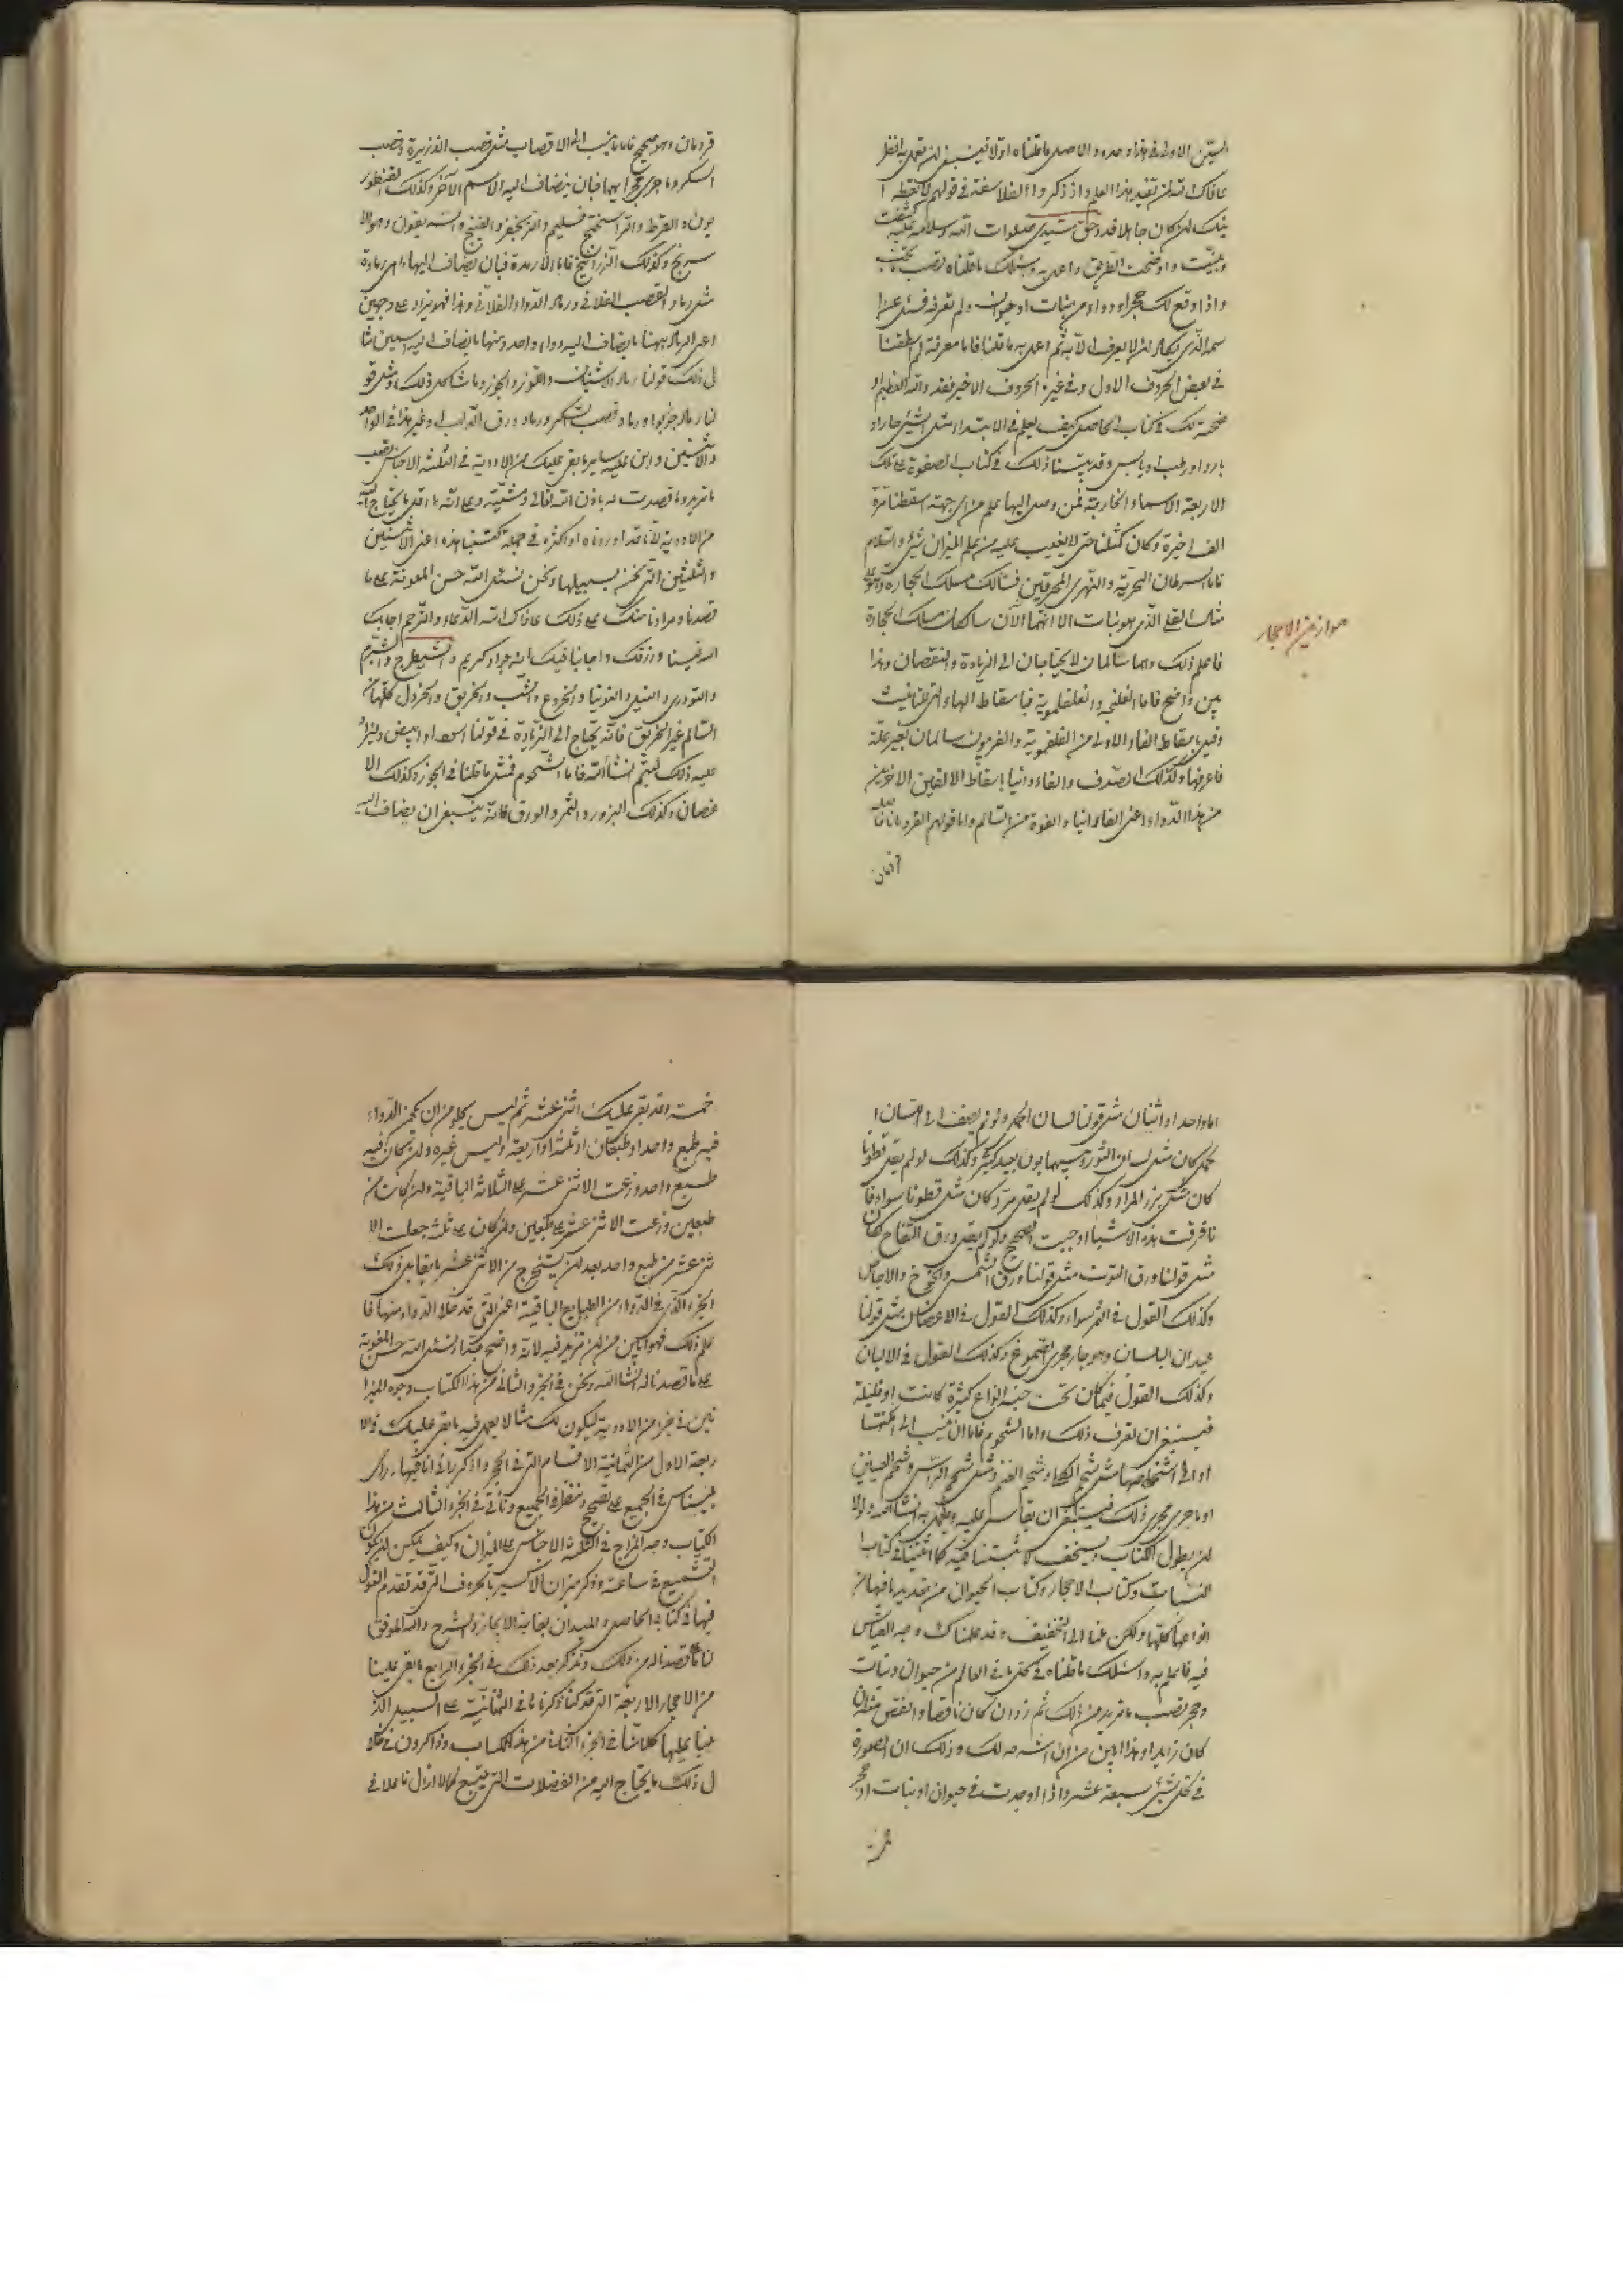 السين الاولى في هذا وحده والاصل ما قلناه اولا فينبغي ان تعمل به انظر
عافاك الله ان تفيد بهذا العلم واذ ذكروا الفلاسفة في قولهم لا تعطه ا
بنك ان كان جاهلا فقد وحق سيدي صلوات الله وسلامه عليه كشفت
وبينت واوضحت الطريق واعمل به وسلك ما قلناه تصب تحب
واذا وقع لك حجر او دواء من نبات او حيوان ولم تعرفه فسئل عن ا
سمه الذي يكاد ان لا يعرف الا به ثم اعمل به ما قلنا فاما معرفة لم اسقطنا
في بعض الحروف الاول وفي غيره الحروف الاخير فقد والله العظيم او
ضحته لك في كتاب الحاصل كيف يعلم في الابتداء مثل الشيئ حار او
بارد او رطب او يابس وقد بيننا ذلك في كتاب الصفوة على تلك
الاربعة الاسماء الخارجة فمن وصل اليها علم من اي جهة اسقطنا تارة
الف اخيرة وكان كمثلنا حتى لا يغيب عليه من علم الميزان شيئ والسلام
فاما السرطان البحرية والنهري المحرقين فسالك مسلك الحجارة وهو على
مثال القلي الذي هو نبات الا انهما الآن سالكان مسلك الحجارة
فاعلم ذلك وهما سالمان لا يحتاجان الى الزيادة والنقصان وهذا
بين واضح فاما الفلنجه والفلفلموية فباسقاط الهاء التي للتانيث
وقيل باسقاط الفاء الاولى من الفلفلموية والفربيون سالمان بغير علة
فاعرفها وكذلك الصدف والفاءوانيا باسقاط الالفين الاخرين
من هذا الدواء اعني الفاءوانيا والفوة من السالم واما قولهم القردمانا فاصله
موازين الاحجار
قردمان
قردمان وهو صحيح فاما ما ينسب الى الاقصاب مثل قصب الذريرة وقصب
السكر وما جرى مجراهما فبان يضاف اليه الاسم الآخر وكذلك القنطور
يون والقرط والقراسنخج فسليم والزنجفر والفنيخ وانه يقول وهو الا
سرنج وكذلك الزرانيخ فاما الارمدة فبان يضاف اليها اي رمادة
مثل رماد القصب الفلاني ورماد الدواء الفلاني وهذا فهو يزاد على وجهين
اعني الرماد منها ما يضاف اليه دواء واحد ومنها ما يضاف اليه اسمين مثا
ل ذلك قولنا رماد الاشنان واللوز والجوز وما شاكل ذلك ومثل قو
لنا رماد جوز بوا ورماد قصب السكر ورماد ورق الدلب وغير هذا في الواحد
والاثنين وابن عليه ساير ما بقي عليك من الادوية في الثلثة الاجناس تصب
ما تريد وما قصدت له باذن الله تعالى ومشيته وعلى الله ما اقل ما يحتاج اليه
من الادوية لانا قد اوردناه او اكثره في جملة كتبنا هذه اعني الاثنين
والثلثين التي نحن بسبيلها ونحن نسئل الله حسن المعونة على ما
قصدنا ومرادنا منك على ذلك عافاك الله الدعاء والترحم اجابك
الله فينا ورزقك واجابنا فيك انه جواد كريم والشيطرج والشبرم
والتودري والنيل والتوتيا والخروع والشب والخريق والخردل كلها من
السالم غير الخربق فانه يحتاج الى الزيادة في قولنا اسود او ابيض وليزاد
عليه ذلك ليتم انشأ الله فاما الشحوم فمثل ما قلنا في الجوز وكذلك الا
غصان وكذلك البزور والثمر والورق فانه ينبغي ان يضاف اليه
اما واحد او اثنان مثل قولنا لسان الحمل ولو لم يضف الى لسان ا
لحمل كان مثل لسان الثور وبينهما بون بعيد كثير وكذلك لو لم يقل قطونا
كان مثل بزر المرار وكذلك لو لم يقل مر وكان مثل قطونا سواء فا
نافرقت بهذه الاشياء اوجبت الصحيح ولو لم يقل ورق التفاح كان
مثل قولنا ورق التوت مثل قولنا ورق المشمس والخوخ والاجاص
وكذلك القول في الثمر سواء وكذلك القول في الاغصان مثل قولنا
عيدان البلسان وهو جار مجرى الصموغ وكذلك القول في الالبان
وكذلك القول فيما كان تحت جنسه انواع كثيرة كانت او قليلة
فينبغي ان تعرف ذلك واما الشحوم فاما ان تنسب الى امكنتها
او الى اشخاصها مثل شحم الكلاء وشحم الغنم ومثل شحم الراس وشحم العينين
او ما جرى مجرى ذلك فينبغي ان يقاس عليه ويعمل به انشا الله ولولا
ان يطول الكتاب ويسخف لاثبتنا فيه كما اثبتنا في كتاب ا
لنبات وكتاب الاحجار وكتاب الحيوان من تعديد ما فيها من
انواعها كلها ولكن عنا الى التخفيف وقد علمناك وجه القياس
فيه فاعمل به واسلك ما قلناه في كل ما في العالم من حيوان ونبات
وحجر تصب ما تريد من ذلك ثم زد ان كان ناقصا وانقص منه ان
كان زايدا وهذا ابين من ان اشرحه لك وذلك ان الصورة
في كل شيئ سبعة عشر واذا وجدت في حيوان او نبات او حجر
خمسة
خمسة فقد بقى عليك اثنى عشر ثم ليس يخلو من ان يكون الدواء
فيه طبع واحد او طبعان او ثلثة او اربعة وليس غيره وان كان فيه
طبع واحد وزعت الاثنى عشر على الثلاثة الباقية وان كان من
طبعين وزعت الاثنى عشر على طبعين وان كان على ثلثة جعلت الا
ثنى عشر من طبع واحد بعد ان يستخرج من الاثنى عشر ما يقابل ذلك
الجزء الذي في الدواء من الطبايع الباقية اعني التي قد خلا الدواء منها فا
علم ذلك فهو ابين من ان تزيد فيه لانه واضح جدا ونسئل الله حسن المعونة
على ما قصدنا له انشا الله ونحن في الجزء الثاني من هذا الكتاب وجوه الميزا
نين في جزء من الادوية ليكون لك مثالا يعمل فيه ما بقى عليك والا
ربعة الاول من الثمانية الاقسام التي في الحجر واذكر باقي ما فيها رأى
بليناس في الجميع على تصحيح وننظر في الجميع ونأتي في الجزء الثالث من هذا
الكتاب وجه المزاج في الثلثة الاجناس على الميزان وكيف يمكن ان يكون
التشميع في ساعته ونذكر ميزان الاكسير بالحروف التي قد تقدم القول
فيها في كتابه الحاصل والميدان بغاية الايجاز والشرح والله الموفق
لنا لما قصدنا له من ذلك ونذكر بعد ذلك في الجزء الرابع ما بقى علينا
من الاحجار الاربعة التي قد كنا ذكرناها في الثمانية على السبيل الذ
عليها كلامنا في الجزء الثاني من هذا الكتاب وذاكرون في خلا
ل ذلك ما يحتاج اليه من الفضلات التي